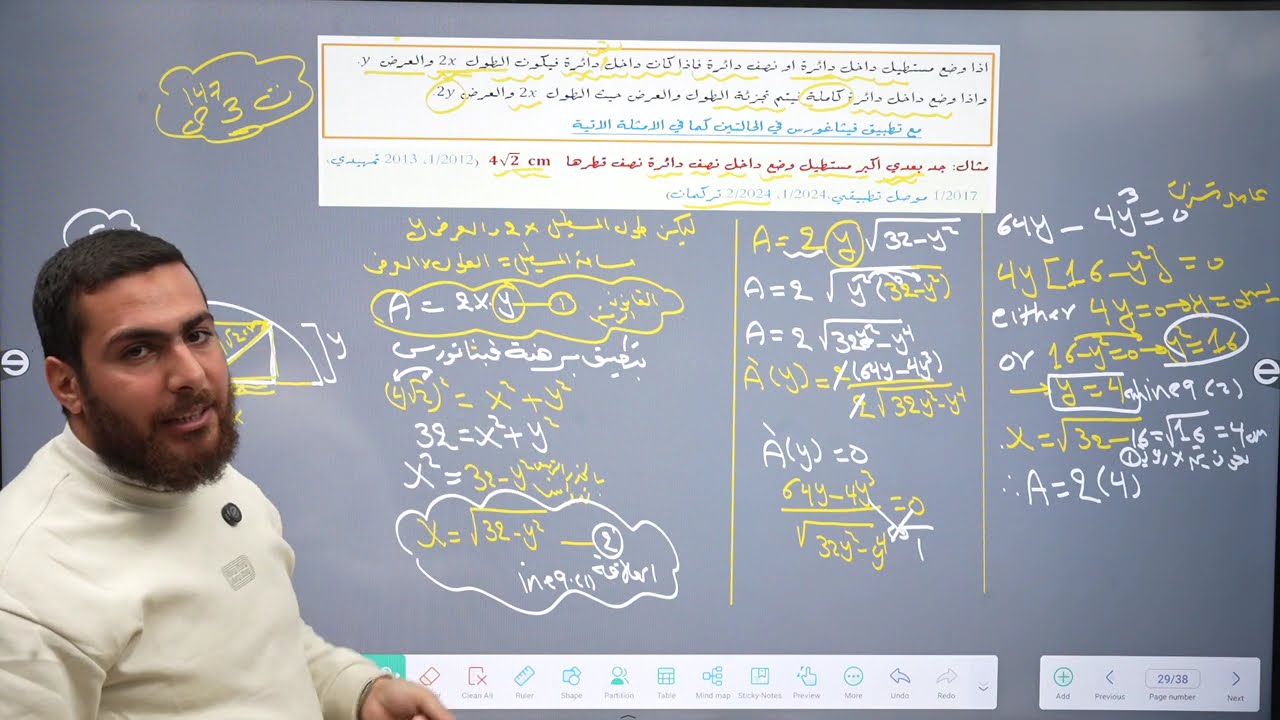 اذا وضع مستطيل داخل دائرة او نصف دائرة فاذا كان داخل دائرة فيكون الطول 2x والعرض y.
واذا وضع داخل دائرة كاملة فيتم تجزئة الطول والعرض حيث الطول 2x والعرض 2y.
مع تطبيق فيثاغورس في الحالتين كما في الامثلة الاتية
مثال: جد بعدي اكبر مستطيل وضع داخل نصف دائرة نصف قطرها 4√2 cm (1/2012، 2013 تمهيدي،
1/2017 موصل تطبيقي، 1/2024، 2/2024 تركمان)
147
ت 3 ص
y
ليكن طول المستطيل 2x والعرض y
مساحة المستطيل = الطول x العرض
A = 2xy — ① القانون الرئيسي
بتطبيق مبرهنة فيثاغورس
(4√2)² = x² + y²
32 = x² + y²
x² = 32 - y² بالجذر
x = √32 - y² — ② العلاقة
in eq.(1)
A = 2 y √32 - y²
A = 2 √y²(32 - y²)
A = 2 √32y² - y⁴
À(y) = 2(64y - 4y³)
2√32y² - y⁴
À(y) = 0
64y - 4y³ = 0
√32y² - y⁴ 1
64y - 4y³ = 0 عامل مشترك
4y[16 - y²] = 0
either 4y = 0 → y = 0
or 16 - y² = 0 → y² = 16
→ y = 4 cm in eq (2)
x = √32 - 16 = √16 = 4 cm
∴ A = 2(4)
Clean All
Ruler
Shape
Partition
Table
Mind map
Sticky-Notes
Preview
More
Undo
Redo
Add
Previous
29/38
Page number
Next